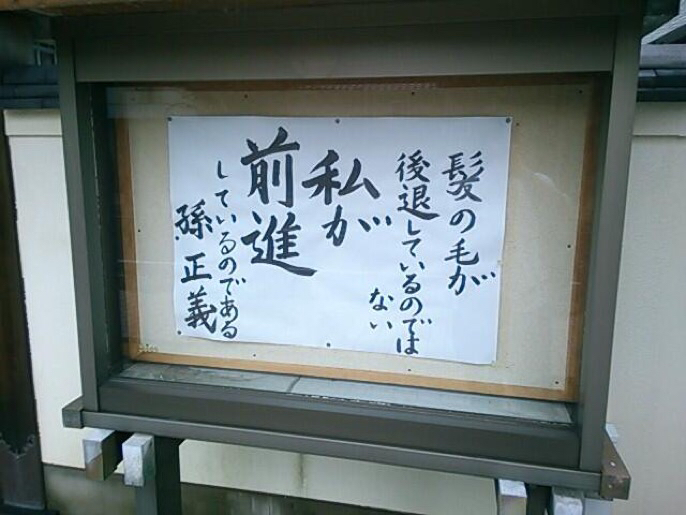 髪の毛が
後退しているのでは
ない
私が
前進
しているのである
孫正義